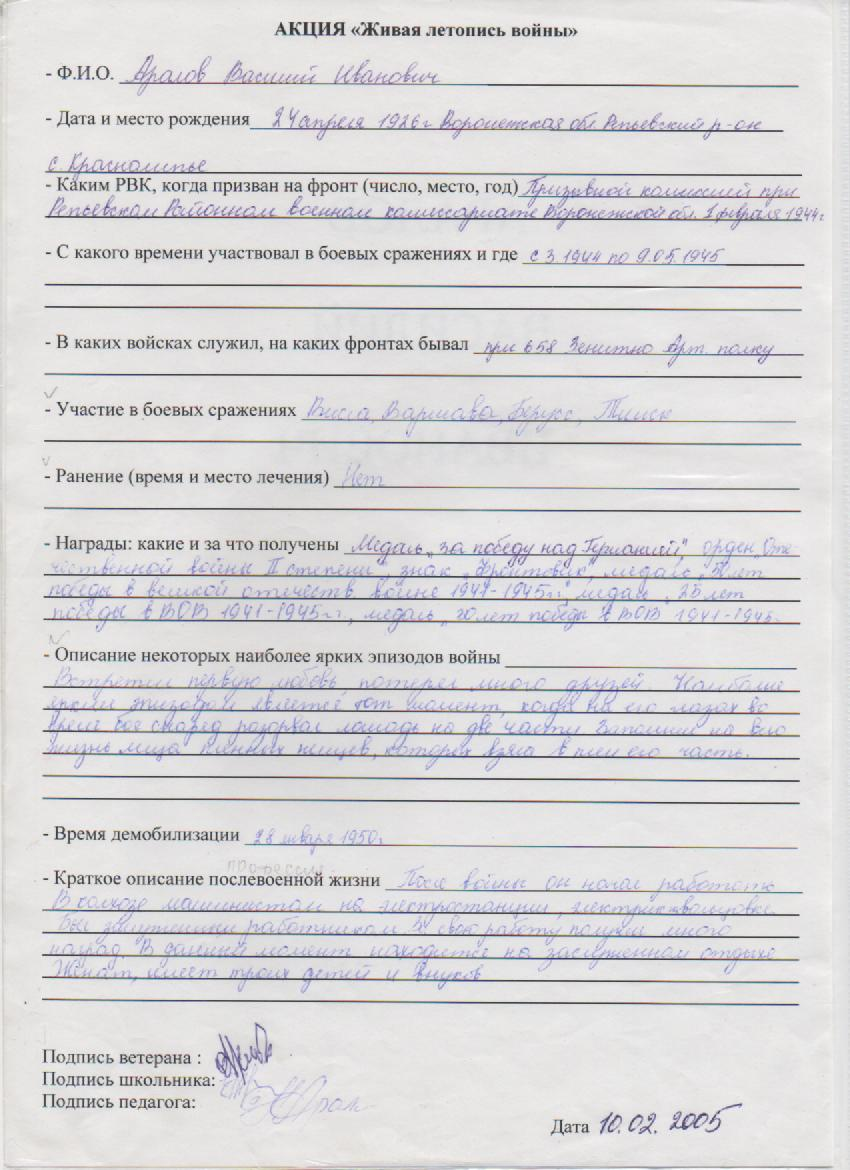 АКЦИЯ «Живая летопись войны»
- Ф.И.О. Аралов Василий Иванович
- Дата и место рождения 24 апреля 1926 г Воронежская обл. Репьевский р-он
с. Краснолипье
- Каким РВК, когда призван на фронт (число, место, год) Призывной комиссией при
Репьевском Районном военном комиссариате Воронежской обл. 1 февраля 1944 г
- С какого времени участвовал в боевых сражениях и где с 3.1944 по 9.05.1945
- В каких войсках служил, на каких фронтах бывал при 658 Зенитно Арт. полку
- Участие в боевых сражениях Висла, Варшава,
- Ранение (время и место лечения) Нет
- Награды: какие и за что получены Медаль „за победу над Германией", орден „Оте-
чественной войны II степени", знак „Фронтовик", медаль „50 лет
победы в великой отечеств. войне 1941-1945 г.г", медаль „25 лет
победы в ВОВ 1941-1945 г.г., медаль „20 лет победы в ВОВ 1941-1945г.
- Описание некоторых наиболее ярких эпизодов войны
Встретил первую любовь, потерял много друзей. Наиболее
ярким эпизодом является тот момент, когда на его глазах во
время боя снаряд разорвал лошадь на две части. Запомнил на всю
жизнь лица пленных немцев, которых взяла в плен его часть.
- Время демобилизации 28 января 1950г.
профессия
- Краткое описание послевоенной жизни После войны он начал работать
В колхозе машинистом на электростанции,
Был заслуженным работником. За свою работу получил много
наград. В данный момент находится на заслуженном отдыхе
Женат, имеет троих детей и внуков
Подпись ветерана :
Подпись школьника:
Подпись педагога:
Дата 10.02.2005